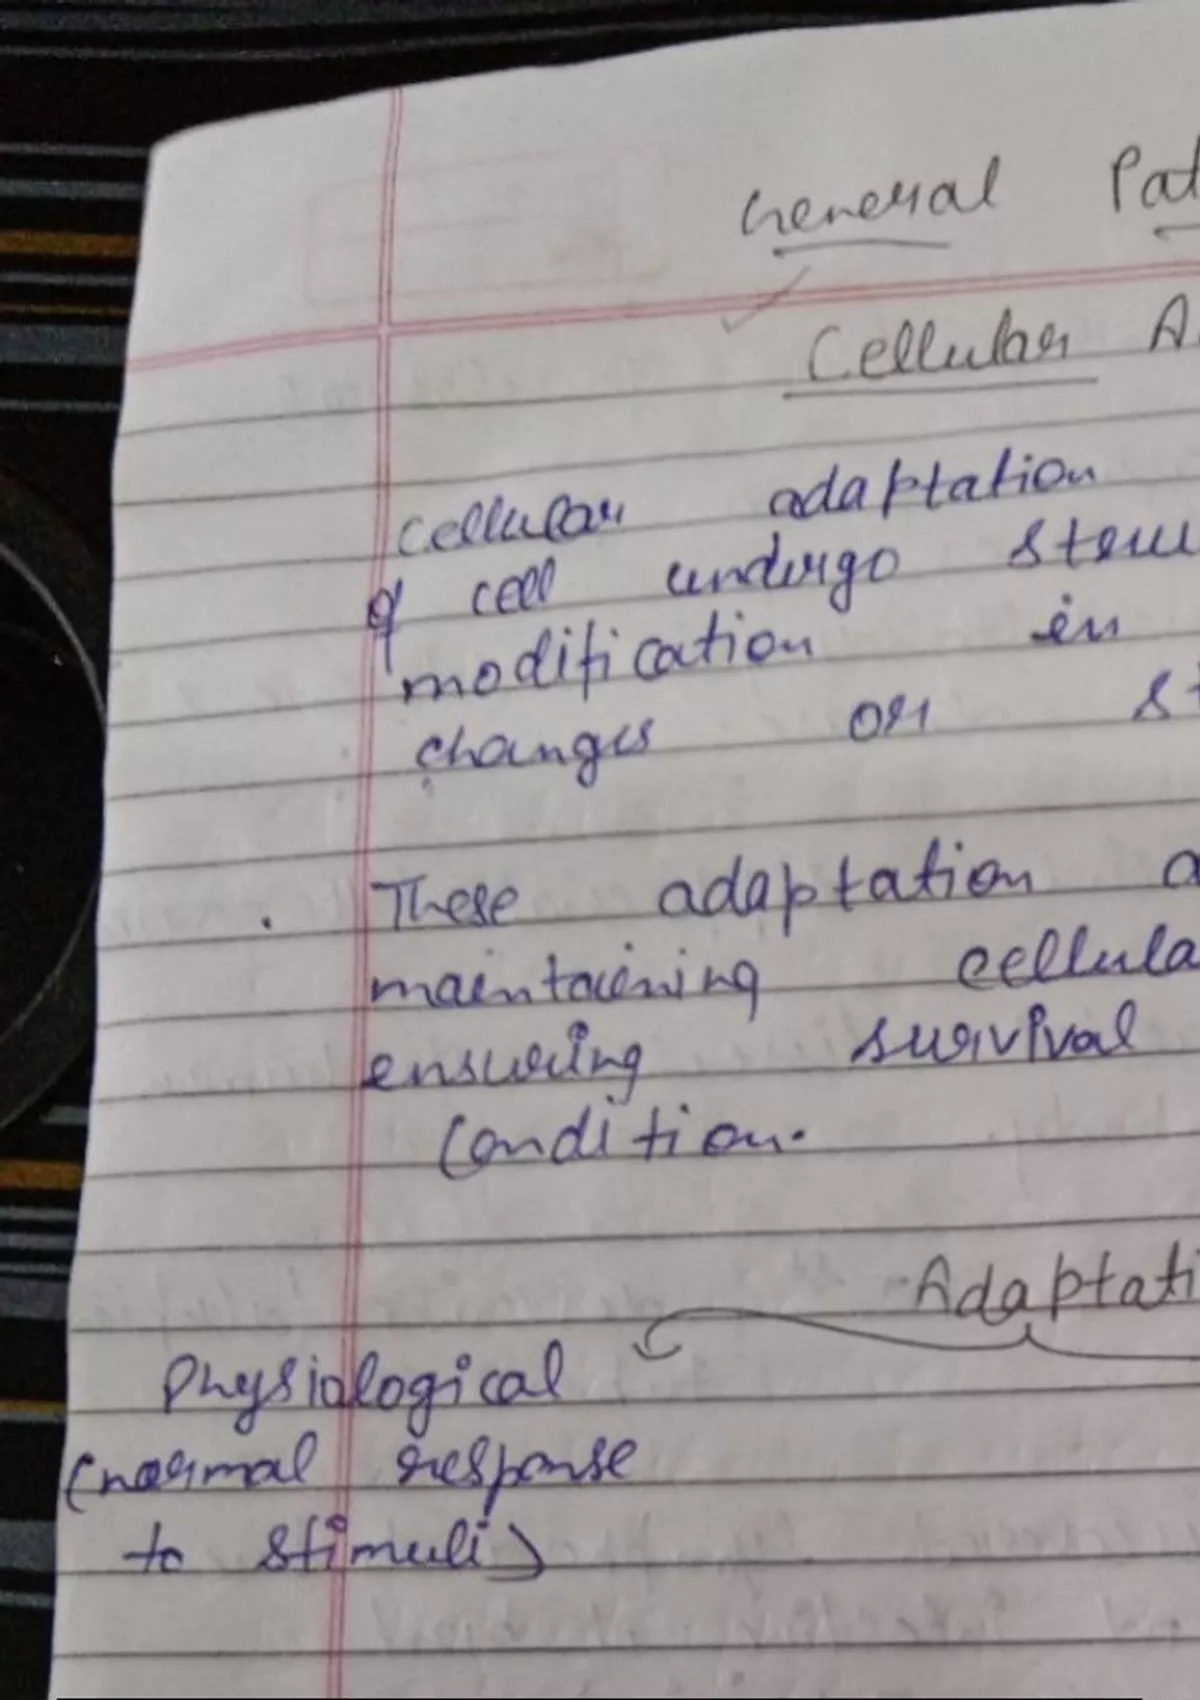 General Pat
Cellular A
cellular adaptation
of cell undergo
modification in
changes or st
These adaptation a
maintaining cellula
ensuring survival
Condition.
Adaptati
Physiological
(normal response
to stimuli)